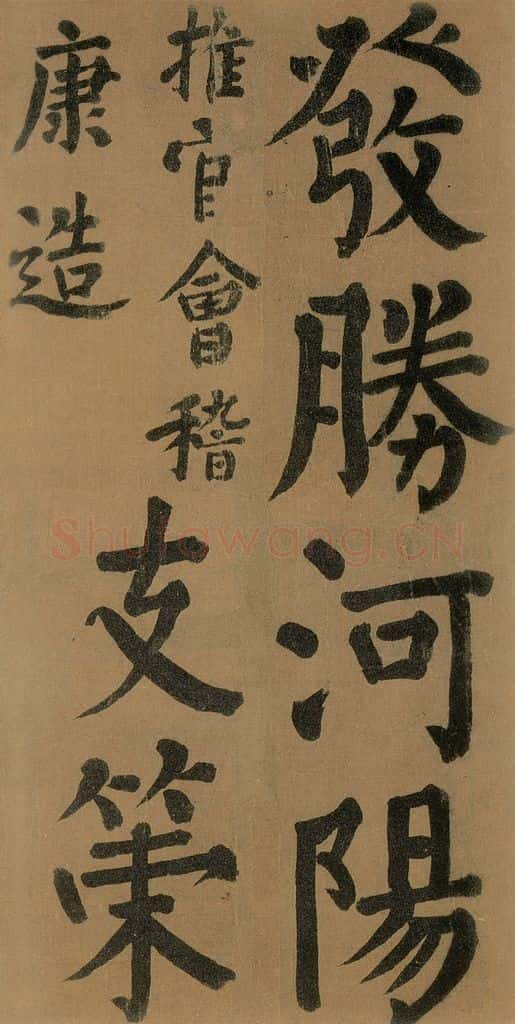 發勝河陽
推官會稽
康造
支策
Shufawang.CN